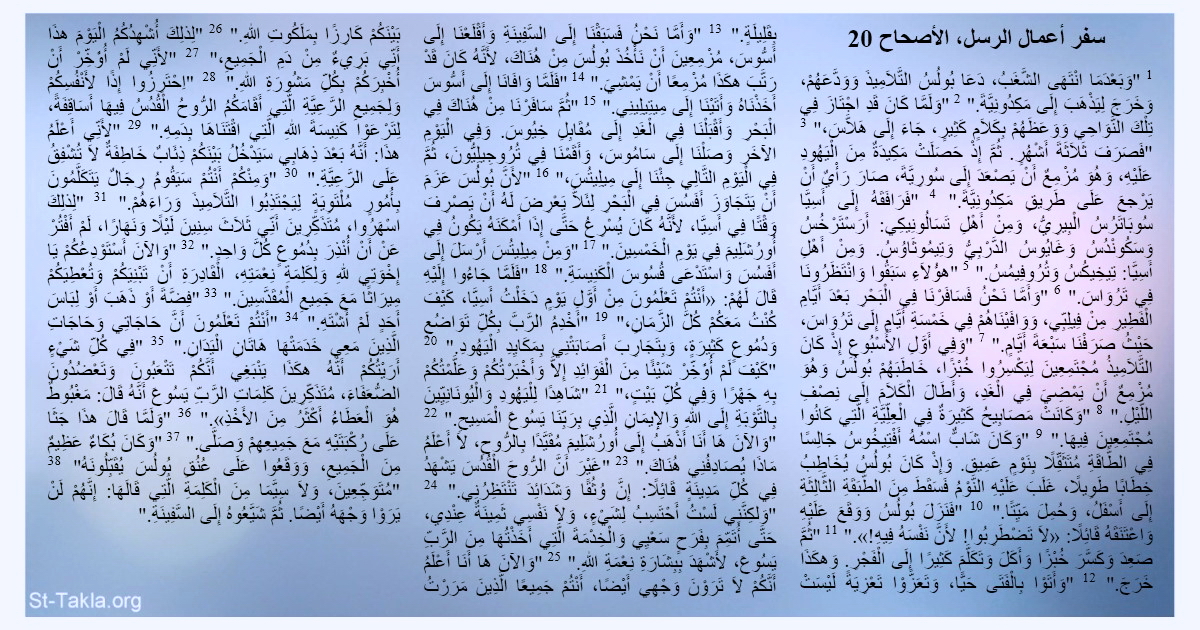 سفر أعمال الرسل، الأصحاح 20
1 "وَبَعْدَمَا انْتَهَى الشَّغَبُ، دَعَا بُولُسُ التَّلاَمِيذَ وَوَدَّعَهُمْ،
وَخَرَجَ لِيَذْهَبَ إِلَى مَكِدُونِيَّةَ." 2 "وَلَمَّا كَانَ قَدِ اجْتَازَ فِي
تِلْكَ النَّوَاحِي وَوَعَظَهُمْ بِكَلاَمٍ كَثِيرٍ، جَاءَ إِلَى هَلاَّسَ،" 3
"فَصَرَفَ ثَلاَثَةَ أَشْهُرٍ. ثُمَّ إِذْ حَصَلَتْ مَكِيدَةٌ مِنَ الْيَهُودِ
عَلَيْهِ، وَهُوَ مُزْمِعٌ أَنْ يَصْعَدَ إِلَى سُورِيَّةَ، صَارَ رَأْيٌ أَنْ
يَرْجعَ عَلَى طَرِيقِ مَكِدُونِيَّةَ." 4 "فَرَافَقَهُ إِلَى أَسِيَّا
سُوبَاتَرُسُ الْبِيرِيُّ، وَمِنْ أَهْلِ تَسَالُونِيكِي: أَرِسْتَرْخُسُ
وَسَكُونْدُسُ وَغَايُوسُ الدَّرْبِيُّ وَتِيمُوثَاوُسُ. وَمِنْ أَهْلِ
أَسِيَّا: تِيخِيكُسُ وَتُرُوفِيمُسُ." 5 "هؤُلاَءِ سَبَقُوا وَانْتَظَرُونَا
فِي تَرُوَاسَ." 6 "وَأَمَّا نَحْنُ فَسَافَرْنَا فِي الْبَحْرِ بَعْدَ أَيَّامِ
الْفَطِيرِ مِنْ فِيلِبِّي، وَوَافَيْنَاهُمْ فِي خَمْسَةِ أَيَّامٍ إِلَى تَرُوَاسَ،
حَيْثُ صَرَفْنَا سَبْعَةَ أَيَّامٍ." 7 "وَفِي أَوَّلِ الأُسْبُوعِ إِذْ كَانَ
التَّلاَمِيذُ مُجْتَمِعِينَ لِيَكْسِرُوا خُبْزًا، خَاطَبَهُمْ بُولُسُ وَهُوَ
مُزْمِعٌ أَنْ يَمْضِيَ فِي الْغَدِ، وَأَطَالَ الْكَلاَمَ إِلَى نِصْفِ
اللَّيْلِ." 8 "وَكَانَتْ مَصَابِيحُ كَثِيرَةٌ فِي الْعِلِّيَّةِ الَّتِي كَانُوا
مُجْتَمِعِينَ فِيهَا." 9 "وَكَانَ شَابٌّ اسْمُهُ أَفْتِيخُوسُ جَالِسًا
فِي الطَّاقَةِ مُتَثَقِّلاً بِنَوْمٍ عَمِيق. وَإِذْ كَانَ بُولُسُ يُخَاطِبُ
خِطَابًا طَوِيلاً، غَلَبَ عَلَيْهِ النَّوْمُ فَسَقَطَ مِنَ الطَّبَقَةِ الثَّالِثَةِ
إِلَى أَسْفَلُ، وَحُمِلَ مَيِّتًا." 10 "فَنَزَلَ بُولُسُ وَوَقَعَ عَلَيْهِ
وَاعْتَنَقَهُ قَائِلاً: «لاَ تَضْطَرِبُوا! لأَنَّ نَفْسَهُ فِيهِ!»." 11 "ثُمَّ
صَعِدَ وَكَسَّرَ خُبْزًا وَأَكَلَ وَتَكَلَّمَ كَثِيرًا إِلَى الْفَجْرِ. وَهكَذَا
خَرَجَ." 12 "وَأَتَوْا بِالْفَتَى حَيًّا، وَتَعَزَّوْا تَعْزِيَةً لَيْسَتْ
بِقَلِيلَةٍ." 13 "وَأَمَّا نَحْنُ فَسَبَقْنَا إِلَى السَّفِينَةِ وَأَقْلَعْنَا إِلَى
أَسُّوسَ، مُزْمِعِينَ أَنْ نَأْخُذَ بُولُسَ مِنْ هُنَاكَ، لأَنَّهُ كَانَ قَدْ
رَتَّبَ هكَذَا مُزْمِعًا أَنْ يَمْشِيَ." 14 "فَلَمَّا وَافَانَا إِلَى أَسُّوسَ
أَخَذْنَاهُ وَأَتَيْنَا إِلَى مِيتِيلِينِي." 15 "ثُمَّ سَافَرْنَا مِنْ هُنَاكَ فِي
الْبَحْرِ وَأَقْبَلْنَا فِي الْغَدِ إِلَى مُقَابِلِ خِيُوسَ. وَفِي الْيَوْمِ
الآخَرِ وَصَلْنَا إِلَى سَامُوسَ، وَأَقَمْنَا فِي تُرُوجِيلِيُّونَ، ثُمَّ
فِي الْيَوْمِ التَّالِي جِئْنَا إِلَى مِيلِيتُسَ،" 16 "لأَنَّ بُولُسَ عَزَمَ
أَنْ يَتَجَاوَزَ أَفَسُسَ فِي الْبَحْرِ لِئَلاَّ يَعْرِضَ لَهُ أَنْ يَصْرِفَ
وَقْتًا فِي أَسِيَّا، لأَنَّهُ كَانَ يُسْرِعُ حَتَّى إِذَا أَمْكَنَهُ يَكُونُ فِي
أُورُشَلِيمَ فِي يَوْمِ الْخَمْسِينَ." 17 "وَمِنْ مِيلِيتُسَ أَرْسَلَ إِلَى
أَفَسُسَ وَاسْتَدْعَى قُسُوسَ الْكَنِيسَةِ." 18 "فَلَمَّا جَاءُوا إِلَيْهِ
قَالَ لَهُمْ: «أَنْتُمْ تَعْلَمُونَ مِنْ أَوَّلِ يَوْمٍ دَخَلْتُ أَسِيَّا، كَيْفَ
كُنْتُ مَعَكُمْ كُلَّ الزَّمَانِ،" 19 "أَخْدِمُ الرَّبَّ بِكُلِّ تَوَاضُعٍ
وَدُمُوعٍ كَثِيرَةٍ، وَبِتَجَارِبَ أَصَابَتْنِي بِمَكَايِدِ الْيَهُودِ." 20
"كَيْفَ لَمْ أُؤَخِّرْ شَيْئًا مِنَ الْفَوَائِدِ إِلاَّ وَأَخْبَرْتُكُمْ وَعَلَّمْتُكُمْ
بِهِ جَهْرًا وَفِي كُلِّ بَيْتٍ،" 21 "شَاهِدًا لِلْيَهُودِ وَالْيُونَانِيِّينَ
بِالتَّوْبَةِ إِلَى اللهِ وَالإِيمَانِ الَّذِي بِرَبِّنَا يَسُوعَ الْمَسِيحِ." 22
"وَالآنَ هَا أَنَا أَذْهَبُ إِلَى أُورُشَلِيمَ مُقَيَّدًا بِالرُّوحِ، لاَ أَعْلَمُ
مَاذَا يُصَادِفُنِي هُنَاكَ." 23 "غَيْرَ أَنَّ الرُّوحَ الْقُدُسَ يَشْهَدُ
فِي كُلِّ مَدِينَةٍ قَائِلاً: إِنَّ وُثُقًا وَشَدَائِدَ تَنْتَظِرُنِي." 24
"وَلكِنَّنِي لَسْتُ أَحْتَسِبُ لِشَيْءٍ، وَلاَ نَفْسِي ثَمِينَةٌ عِنْدِي،
حَتَّى أُتَمِّمَ بِفَرَحٍ سَعْيِي وَالْخِدْمَةَ الَّتِي أَخَذْتُهَا مِنَ الرَّبِّ
يَسُوعَ، لأَشْهَدَ بِبِشَارَةِ نِعْمَةِ اللهِ." 25 "وَالآنَ هَا أَنَا أَعْلَمُ
أَنَّكُمْ لاَ تَرَوْنَ وَجْهِي أَيْضًا، أَنْتُمْ جَمِيعًا الَّذِينَ مَرَرْتُ
بَيْنَكُمْ كَارِزًا بِمَلَكُوتِ اللهِ." 26 "لِذلِكَ أُشْهِدُكُمُ الْيَوْمَ هذَا
أَنِّي بَرِيءٌ مِنْ دَمِ الْجَمِيعِ،" 27 "لأَنِّي لَمْ أُؤَخِّرْ أَنْ
أُخْبِرَكُمْ بِكُلِّ مَشُورَةِ اللهِ." 28 "اِحْتَرِزُوا اِذًا لأَنْفُسِكُمْ
وَلِجَمِيعِ الرَّعِيَّةِ الَّتِي أَقَامَكُمُ الرُّوحُ الْقُدُسُ فِيهَا أَسَاقِفَةً،
لِتَرْعَوْا كَنِيسَةَ اللهِ الَّتِي اقْتَنَاهَا بِدَمِهِ." 29 "لأَنِّي أَعْلَمُ
هذَا: أَنَّهُ بَعْدَ ذِهَابِي سَيَدْخُلُ بَيْنَكُمْ ذِئَابٌ خَاطِفَةٌ لاَ تُشْفِقُ
عَلَى الرَّعِيَّةِ." 30 "وَمِنْكُمْ أَنْتُمْ سَيَقُومُ رِجَالٌ يَتَكَلَّمُونَ
بِأُمُورٍ مُلْتَوِيَةٍ لِيَجْتَذِبُوا التَّلاَمِيذَ وَرَاءَهُمْ." 31 "لِذلِكَ
اسْهَرُوا، مُتَذَكِّرِينَ أَنِّي ثَلاَثَ سِنِينَ لَيْلاً وَنَهَارًا، لَمْ أَفْتُرْ
عَنْ أَنْ أُنْذِرَ بِدُمُوعٍ كُلَّ وَاحِدٍ." 32 "وَالآنَ أَسْتَوْدِعُكُمْ يَا
إِخْوَتِي للهِ وَلِكَلِمَةِ نِعْمَتِهِ، الْقَادِرَةِ أَنْ تَبْنِيَكُمْ وَتُعْطِيَكُمْ
مِيرَاثًا مَعَ جَمِيعِ الْمُقَدَّسِينَ." 33 "فِضَّةَ أَوْ ذَهَبَ أَوْ لِبَاسَ
أَحَدٍ لَمْ أَشْتَهِ." 34 "أَنْتُمْ تَعْلَمُونَ أَنَّ حَاجَاتِي وَحَاجَاتِ
الَّذِينَ مَعِي خَدَمَتْهَا هَاتَانِ الْيَدَانِ." 35 "فِي كُلِّ شَيْءٍ
أَرَيْتُكُمْ أَنَّهُ هكَذَا يَنْبَغِي أَنَّكُمْ تَتْعَبُونَ وَتَعْضُدُونَ
الضُّعَفَاءَ، مُتَذَكِّرِينَ كَلِمَاتِ الرَّبِّ يَسُوعَ أَنَّهُ قَالَ: مَغْبُوطٌ
هُوَ الْعَطَاءُ أَكْثَرُ مِنَ الأَخْذِ»." 36 "وَلَمَّا قَالَ هذَا جَثَا
عَلَى رُكْبَتَيْهِ مَعَ جَمِيعِهِمْ وَصَلَّى." 37 "وَكَانَ بُكَاءٌ عَظِيمٌ
مِنَ الْجَمِيعِ، وَوَقَعُوا عَلَى عُنُقِ بُولُسَ يُقَبِّلُونَهُ" 38
"مُتَوَجِّعِينَ، وَلاَ سِيَّمَا مِنَ الْكَلِمَةِ الَّتِي قَالَهَا: إِنَّهُمْ لَنْ
يَرَوْا وَجْهَهُ أَيْضًا. ثُمَّ شَيَّعُوهُ إِلَى السَّفِينَةِ."
St-Takla.org